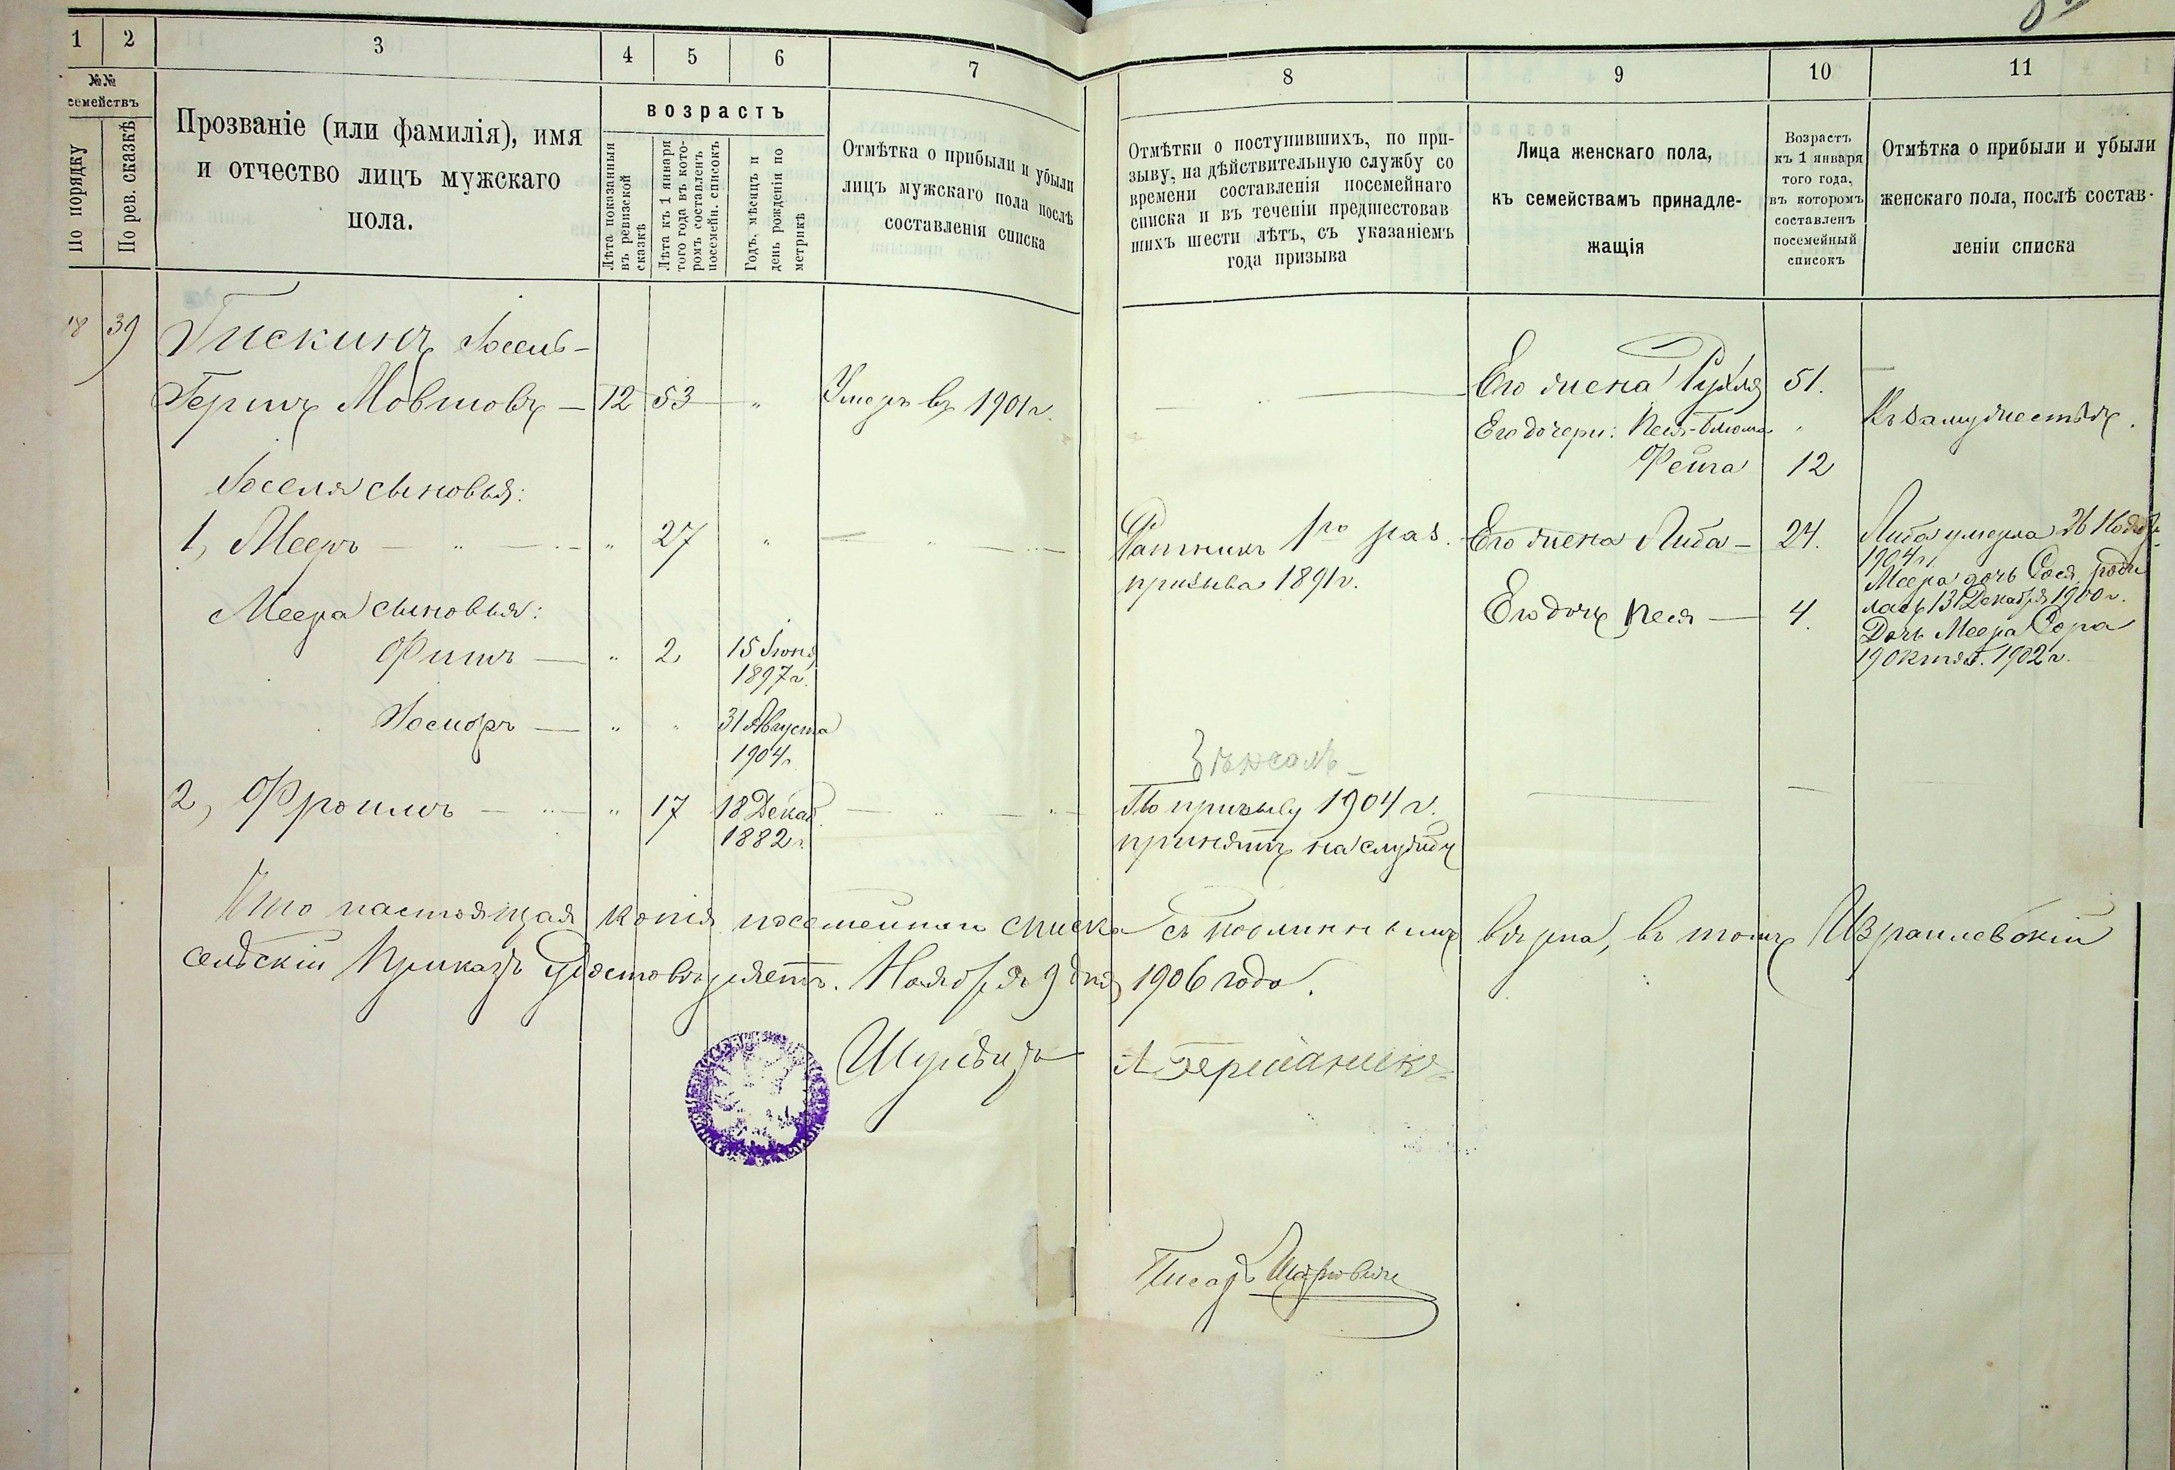 1
2
3
4
5
6
7
8
9
10
11
№№
семействъ
По порядку
По рев. сказкѣ
Прозваніе (или фамилія), имя
и отчество лицъ мужскаго
пола.
возрастъ
Лѣта показанныя
въ ревизской
сказкѣ
Лѣта къ 1 января
того года въ кото-
ромъ составленъ
посемейн. списокъ
Годъ, мѣсяцъ и
день рожденія по
метрикѣ
Отмѣтка о прибыли и убыли
лицъ мужскаго пола послѣ
составленія списка
Отмѣтки о поступившихъ, по при-
зыву, на дѣйствительную службу со
времени составленія посемейнаго
списка и въ теченіи предшествовав
шихъ шести лѣтъ, съ указаніемъ
года призыва
Лица женскаго пола,
къ семействамъ принадле-
жащія
Возрастъ
къ 1 января
того года,
въ которомъ
составленъ
посемейный
списокъ
Отмѣтка о прибыли и убыли
женскаго пола, послѣ состав-
леніи списка
18 39 Гискинъ Іосель-
Гершъ Мовшовъ — 12 53 — „ Умеръ въ 1901 г.
Его жена Рухля 51. —
Его дочери: Песя-Блюма „ Въ замужествѣ.
Фейга 12
Іоселя сыновья:
1, Мееръ — „ — „ 27 „ — „ —
Ратникъ 1го раз.
призыва 1891 г.
Его жена Либа — 24.
Либа умерла 26 Ноября
1904 г.
Меера дочь Сося роди
лась 13 Декабря 1900 г.
Его дочь Песя — 4.
Дочь Меера Сора
19 октяб. 1902 г.
Меера сыновья:
Фишъ — „ 2 15 Іюня
1897 г.
— „ „ 31 Августа
1904 г.
2, Фроимъ — „ — „ 17 18 Декаб.
1882 г.
По призыву 1904 г.
принятъ на службу
Что настоящая копія посемейнаго списка съ подлиннымъ вѣрна, въ томъ Израилевскій
сельскій Приказъ удостовѣряетъ. Ноября 9 дня 1906 года.
Шульцъ А Германикъ
Писарь